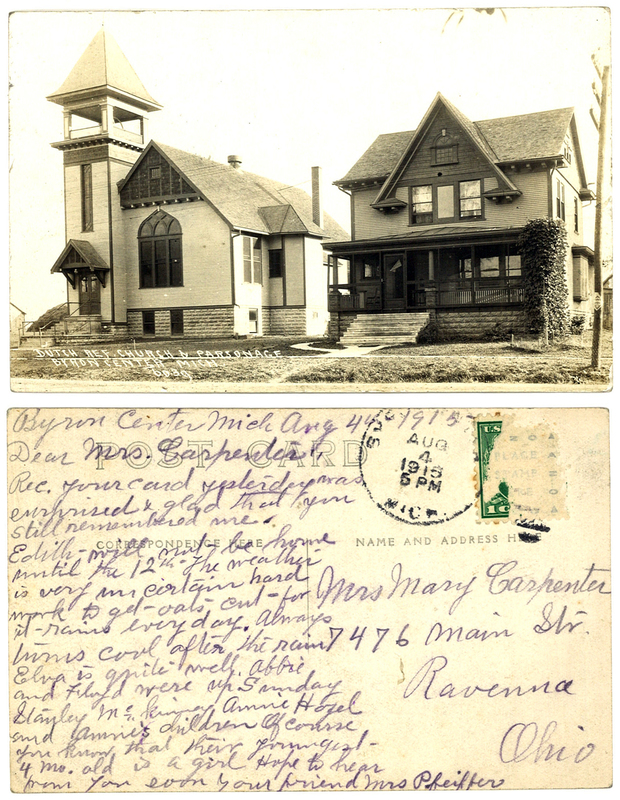 DUTCH REF. CHURCH & PARSONAGE
BYRON CENTER MICH.
Byron Center Mich Aug 4 1915
Dear Mrs. Carpenter,
POST CARD
Rec. your card yesterday was
surprised & glad that you
still remembered me.
CORRESPONDENCE HERE
NAME AND ADDRESS HERE
Edith will not be home
until the 12th The weather
is very uncertain hard
work to get oats cut for
it rains everyday. Always
turns cool after the rain
Elva is quite well. Abbie
and Floyd were up Sunday
Stanley McKinney Annie Hazel
and Annie's children Of course
you know that their youngest
4 mo. old is a girl Hope to hear
from you even your friend Mrs Pfeiffer
AUG
4
1915
5 PM
MICH.
U.S.
1c
PLACE
Mrs Mary Carpenter
7476 Main Str.
Ravenna
Ohio